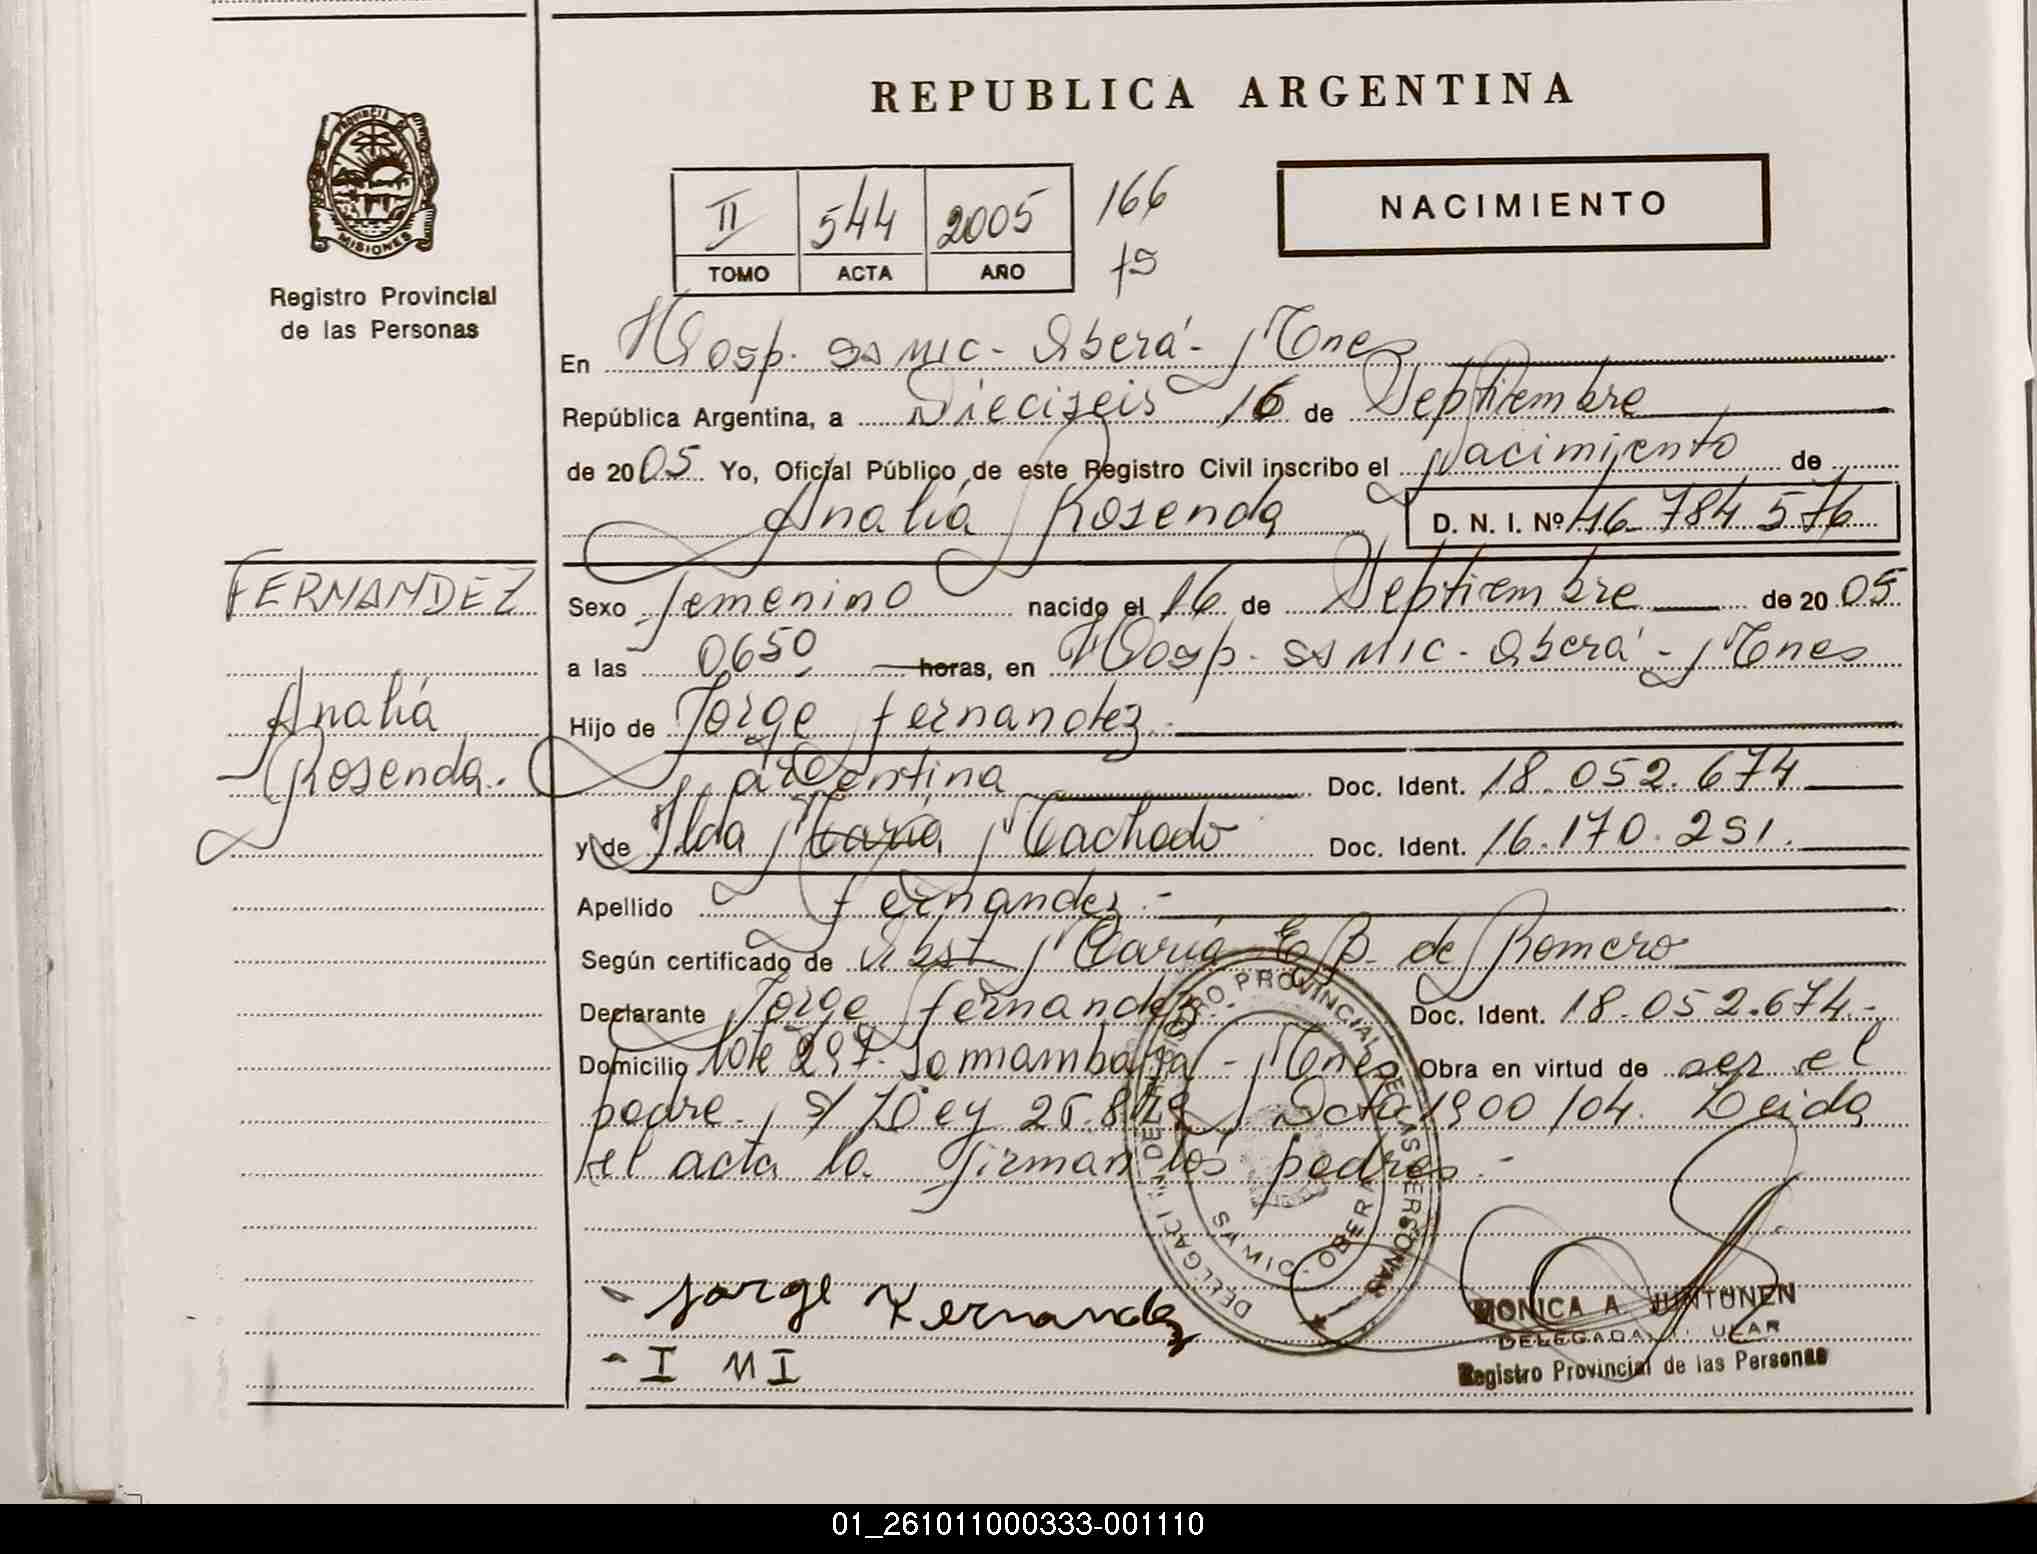 REPUBLICA ARGENTINA
PROVINCIA DE
MISIONES
Registro Provincial
de las Personas
II 544 2005 166
TOMO ACTA AÑO fs
NACIMIENTO
En Hosp. SAMIC - Oberá - Mnes
República Argentina, a Dieciseis 16 de Septiembre
de 2005 Yo, Oficial Público de este Registro Civil inscribo el Nacimiento de
Analía Rosenda D. N. I. Nº 46.784.576
FERNANDEZ
Analía
Rosenda.
Sexo femenino nacido el 16 de Septiembre de 2005
a las 0650 horas, en Hosp. SAMIC - Oberá - Mnes
Hijo de Jorge Fernandez.
argentina Doc. Ident. 18.052.674
y de Ilda María Machado Doc. Ident. 16.170.291.
Apellido Fernandez.-
Según certificado de Obst María E. B. de Romero
Declarante Jorge Fernandez. Doc. Ident. 18.052.674.-
Domicilio lote 297. - Mnes Obra en virtud de ser el
padre. s/ Ley 25.819 Dcto 1900/04. Leida
el acta la firman los padres.-
REGISTRO PROVINCIAL DE LAS PERSONAS
OBERA
Jorge Fernandez
- I MI
MONICA A. JUNTUNEN
DELEGADA TITULAR
Registro Provincial de las Personas
01_261011000333-001110